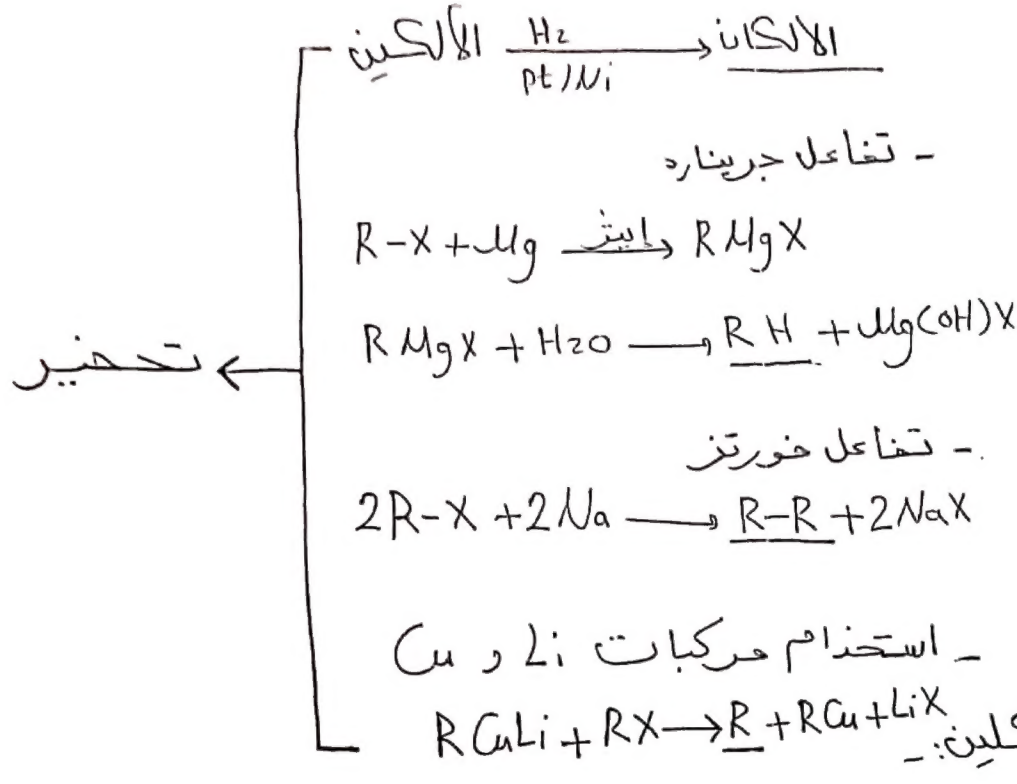 الألكين H2 pt/Ni → الالكان
- تفاعل جريناره
R-X + Mg ايثر→ RMgX
RMgX + H2O → RH + Mg(OH)X
تحضير ←
- تفاعل فورتز
2R-X + 2Na → R-R + 2NaX
- استخدام مركبات Li و Cu
RCuLi + RX → R + RCu + LiX